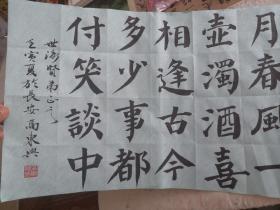 月春風
壺濁酒喜
相逢古今
多少事都
付笑談中
世海賢弟正之
壬寅夏於長安高永興